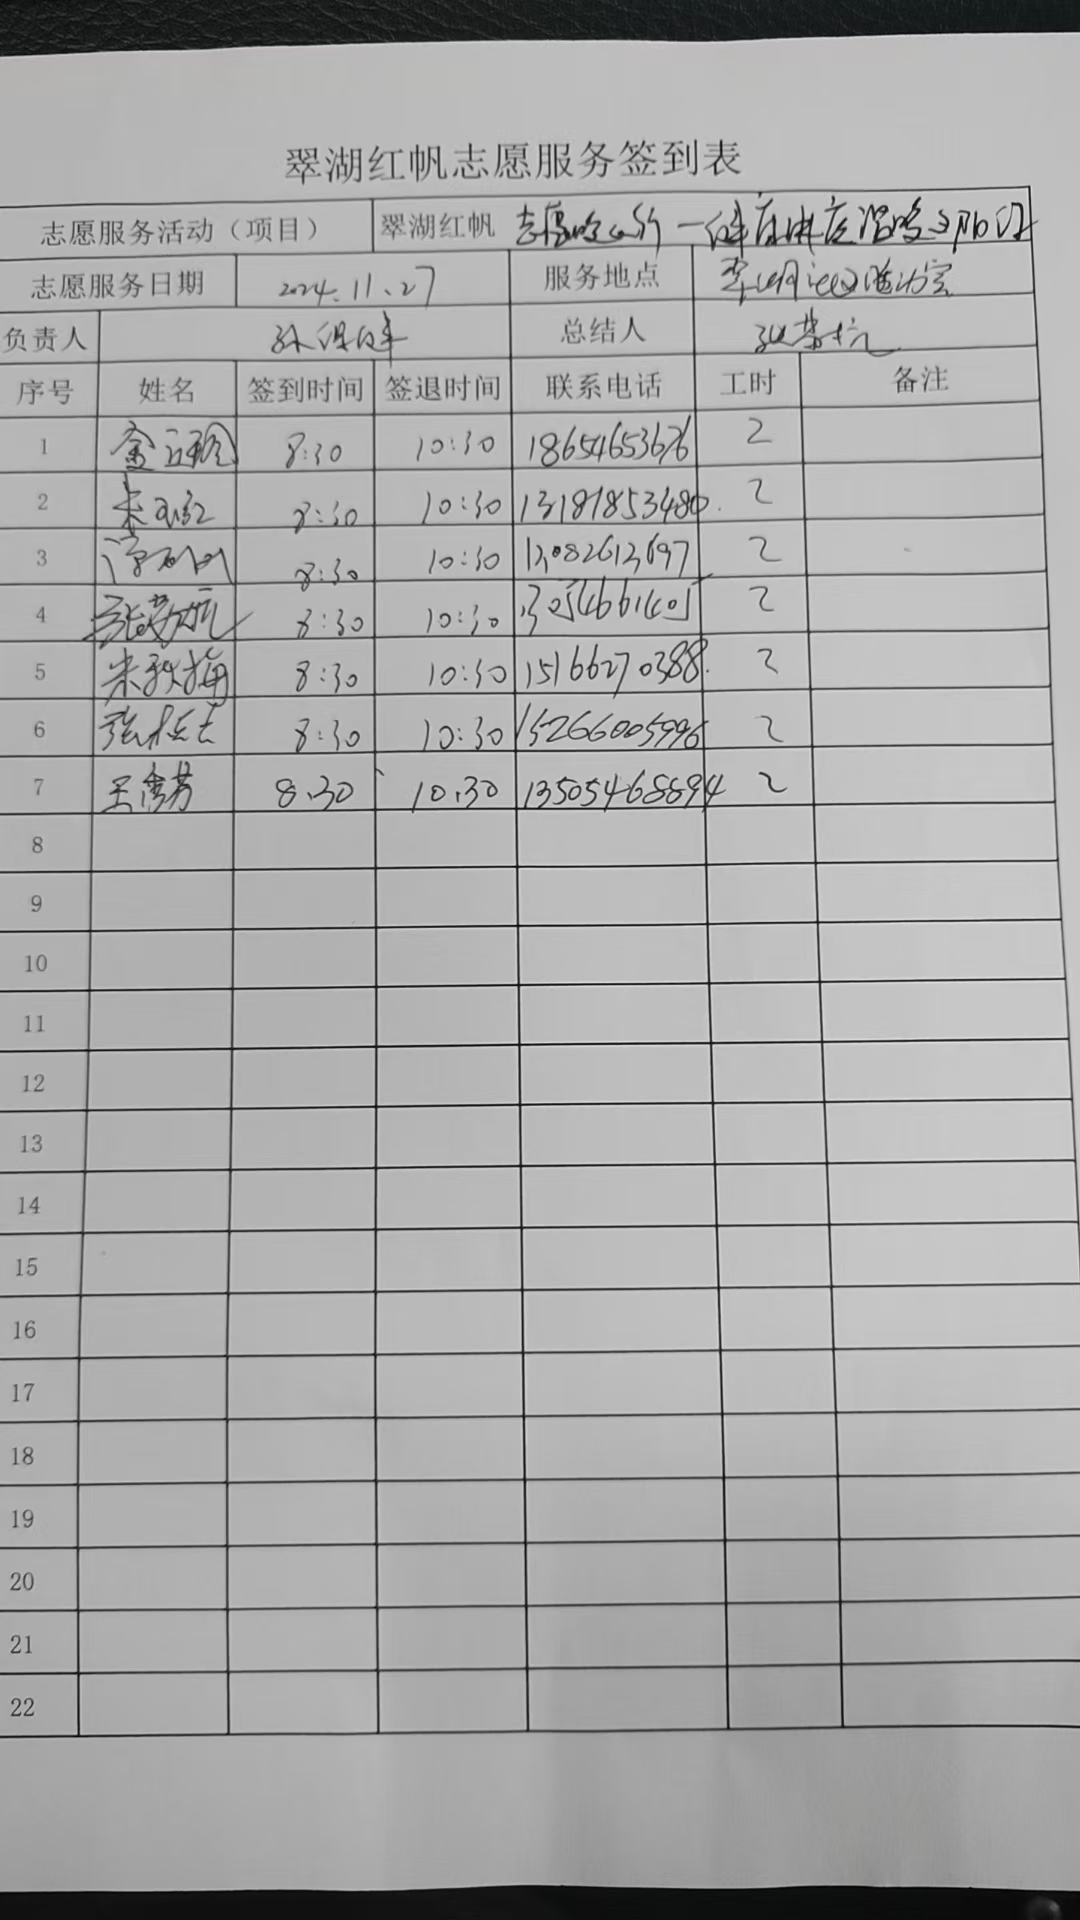 翠湖红帆志愿服务签到表
志愿服务活动（项目） 翠湖红帆 志愿
志愿服务日期 2024.11.27 服务地点
负责人 总结人
序号 姓名 签到时间 签退时间 联系电话 工时 备注
1 8:30 10:30 18654653676 2
2 8:30 10:30 13181853480. 2
3 8:30 10:30 13082613697 2
4 8:30 10:30 2
5 朱秋梅 8:30 10:30 15166270388. 2
6 8:30 10:30 15266005996 2
7 王秀芳 8.30 10.30 13505468894 2
8
9
10
11
12
13
14
15
16
17
18
19
20
21
22